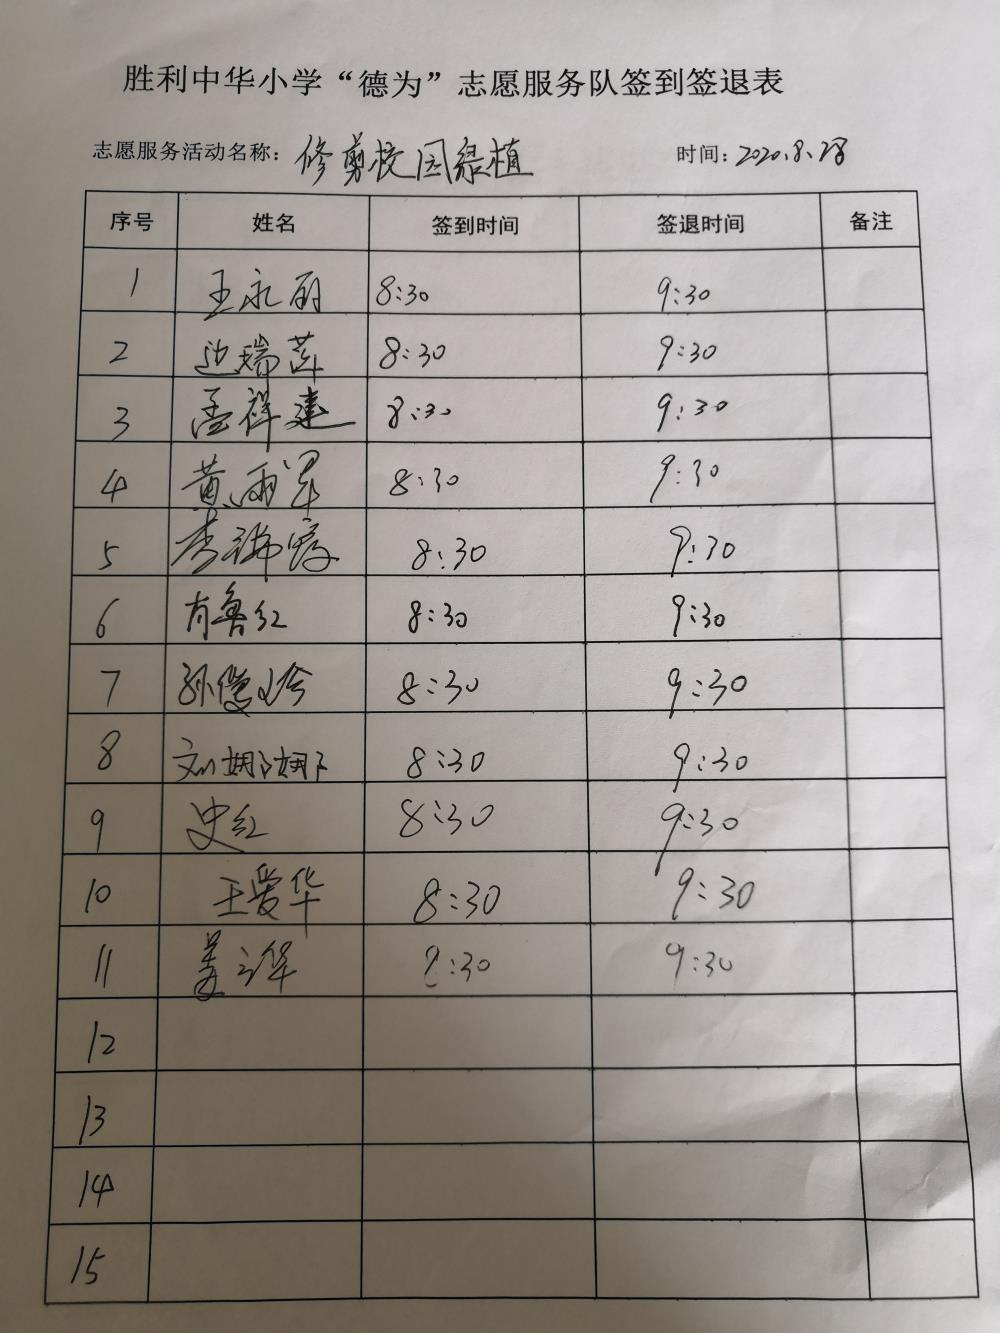 胜利中华小学“德为”志愿服务队签到签退表
志愿服务活动名称：修剪校园绿植 时间：2020.8.28
序号 姓名 签到时间 签退时间 备注
1 王永丽 8:30 9:30
2 边瑞莲 8:30 9:30
3 孟祥建 8:30 9:30
4 黄雨军 8:30 9:30
5 李 8:30 9:30
6 肖鲁红 8:30 9:30
7 孙俊玲 8:30 9:30
8 刘娜娜 8:30 9:30
9 史红 8:30 9:30
10 王爱华 8:30 9:30
11 姜华 8:30 9:30
12
13
14
15